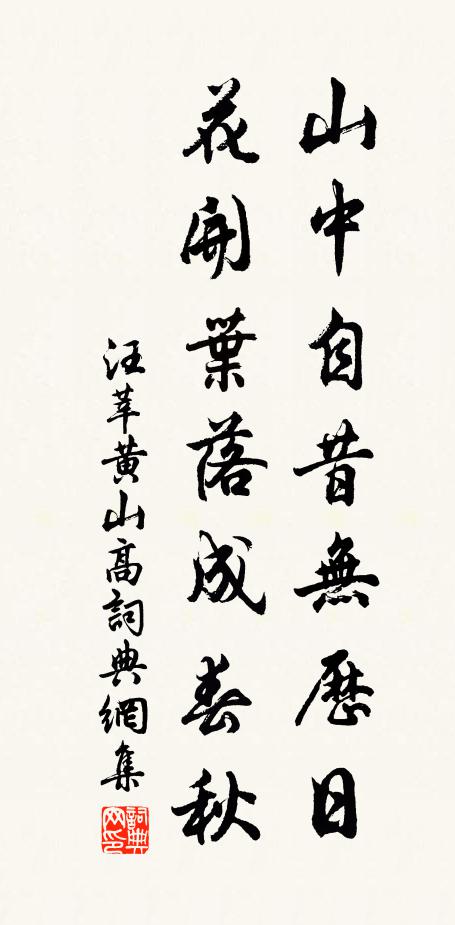 山中自昔無歷日
花開葉落成春秋
汪莘黃山高詞典網集
詞典網印